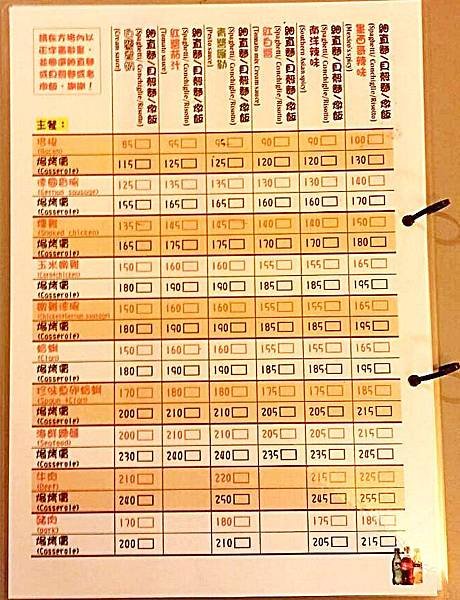 細直麵/貝殼麵/燉飯
(Spaghetti/ Conchiglie/Risotto)
白醬奶油
(Cream sauce)
細直麵/貝殼麵/燉飯
(Spaghetti/ Conchiglie/Risotto)
紅醬茄汁
(Tomato sauce)
細直麵/貝殼麵/燉飯
(Spaghetti/ Conchiglie/Risotto)
(Pesto sauce)
細直麵/貝殼麵/燉飯
(Spaghetti/ Conchiglie/Risotto)
紅白醬
(Tomato mix Cream sauce)
細直麵/貝殼麵/燉飯
(Spaghetti/ Conchiglie/Risotto)
南洋辣味
(Southern Asian spicy)
細直麵/貝殼麵/燉飯
(Spaghetti/ Conchiglie/Risotto)
墨西哥辣味
(Mexico's spicy)
主餐：
培根 85 95 95 90 90 100
(Bacon)
焗烤選 115 125 125 120 120 130
(Casserole)
德國香腸 125 135 135 130 130 140
(German sausage)
焗烤選 155 165 165 160 160 170
(Casserole)
燻雞 135 145 145 140 140 150
(Smoked chicken)
焗烤選 165 175 175 170 170 180
(Casserole)
玉米嫩雞 150 160 160 155 155 165
(Corn+chicken)
焗烤選 180 190 190 185 185 195
(Casserole)
嫩雞德腸 150 160 160 155 155 165
(Chicken+German sausage)
焗烤選 180 190 190 185 185 195
(Casserole)
蛤蜊 150 160 160 155 155 165
(Clam)
焗烤選 180 190 190 185 185 195
(Casserole)
珍味魚卵蛤蜊 170 180 180 175 175 185
焗烤選 200 210 210 205 205 215
(Casserole)
海鮮總匯 200 210 210 205 205 215
(Seafood)
焗烤選 230 240 240 235 235 245
(Casserole)
牛肉 210 220 215 225
(Beef)
焗烤選 240 250 245 255
(Casserole)
豬肉 170 180 175 185
(pork)
焗烤選 200 210 205 215
(Casserole)